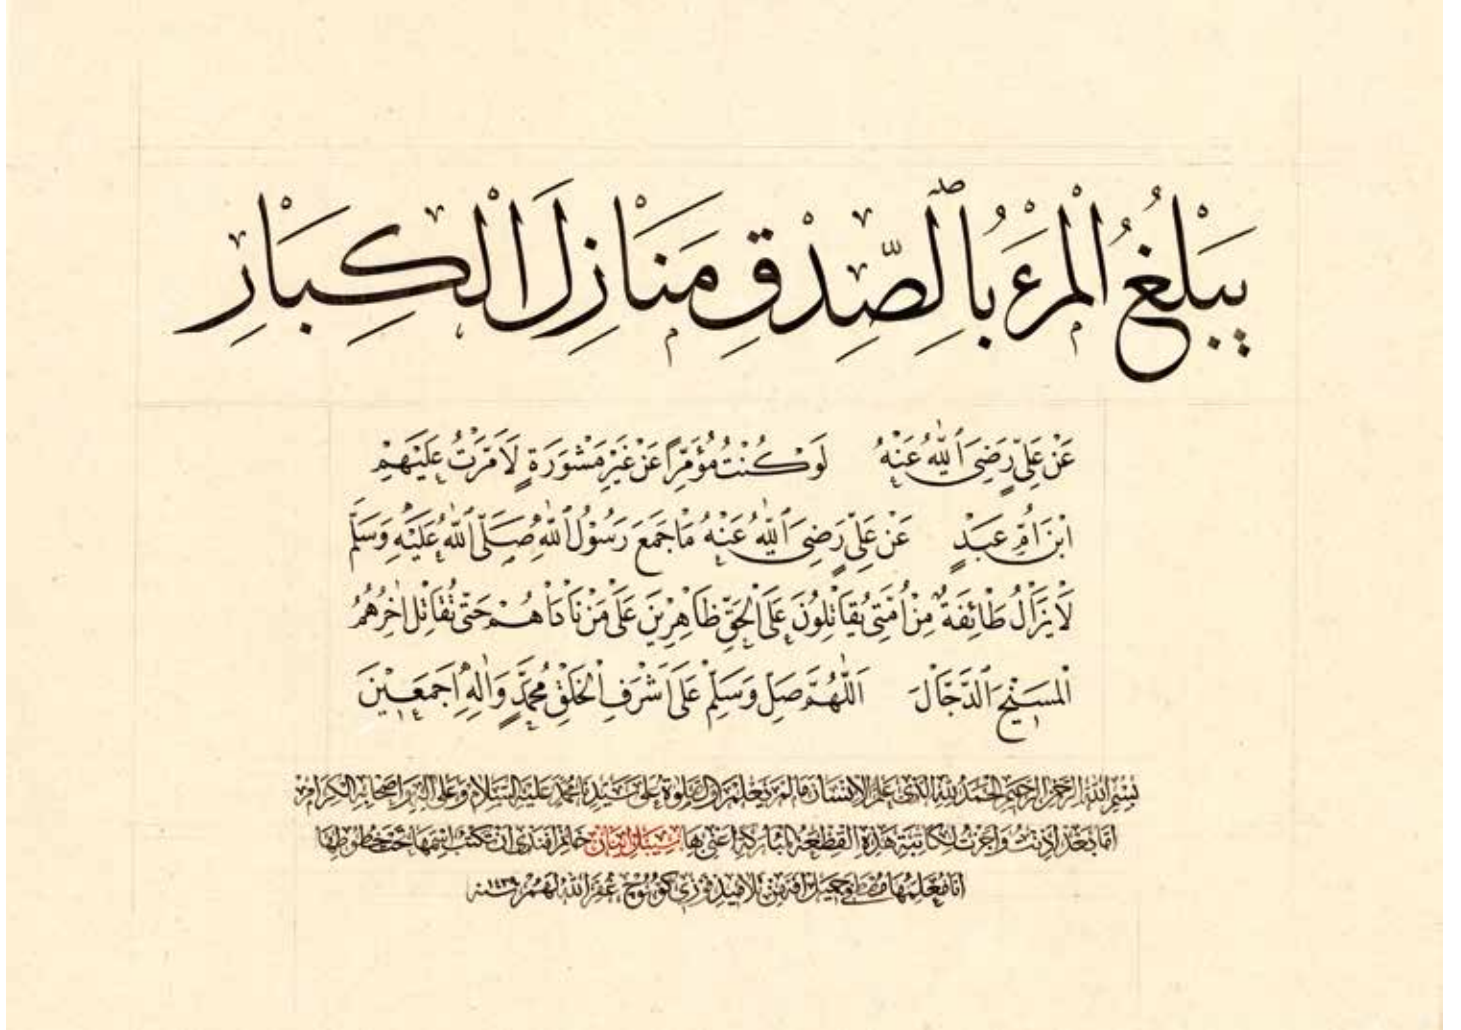 يَبْلُغُ الْمَرْءُ بِالصِّدْقِ مَنَازِلَ الْكِبَارِ
عَنْ عَلِيٍّ رَضِيَ اللّٰهُ عَنْهُ لَوْ كُنْتُ مُؤَمِّرًا عَنْ غَيْرِ مَشْوَرَةٍ لَأَمَّرْتُ عَلَيْهِمْ
ابْنَ أُمِّ عَبْدٍ عَنْ عَلِيٍّ رَضِيَ اللّٰهُ عَنْهُ مَا جَمَعَ رَسُوْلُ اللّٰهِ صَلَّى اللّٰهُ عَلَيْهِ وَسَلَّمَ
لَا يَزَالُ طَائِفَةٌ مِنْ أُمَّتِي يُقَاتِلُونَ عَلَى الْحَقِّ ظَاهِرِيْنَ عَلَى مَنْ نَادَاهُمْ حَتَّى تُقَاتِلَ اٰخِرُهُمُ
الْمَسِيْحَ الدَّجَّالَ اَللّٰهُمَّ صَلِّ وَسَلِّمْ عَلَى أَشْرَفِ الْخَلْقِ مُحَمَّدٍ وَاٰلِهِ أَجْمَعِيْنَ
بسم الله الرحمن الرحيم الحمد لله الذي علم الانسان ما لم يعلم والصلوة على سيدنا محمد عليه السلام وعلى اله واصحابه الكرام
اما بعد اذنت واجزت لكاتبة هذه القطعة المباركة اعني بها خانم افندي ان تكتب اسمها تحت خطوطها
انا معلمها مصطفى جميل من تلاميذ فوزي غفر الله لهم سنه